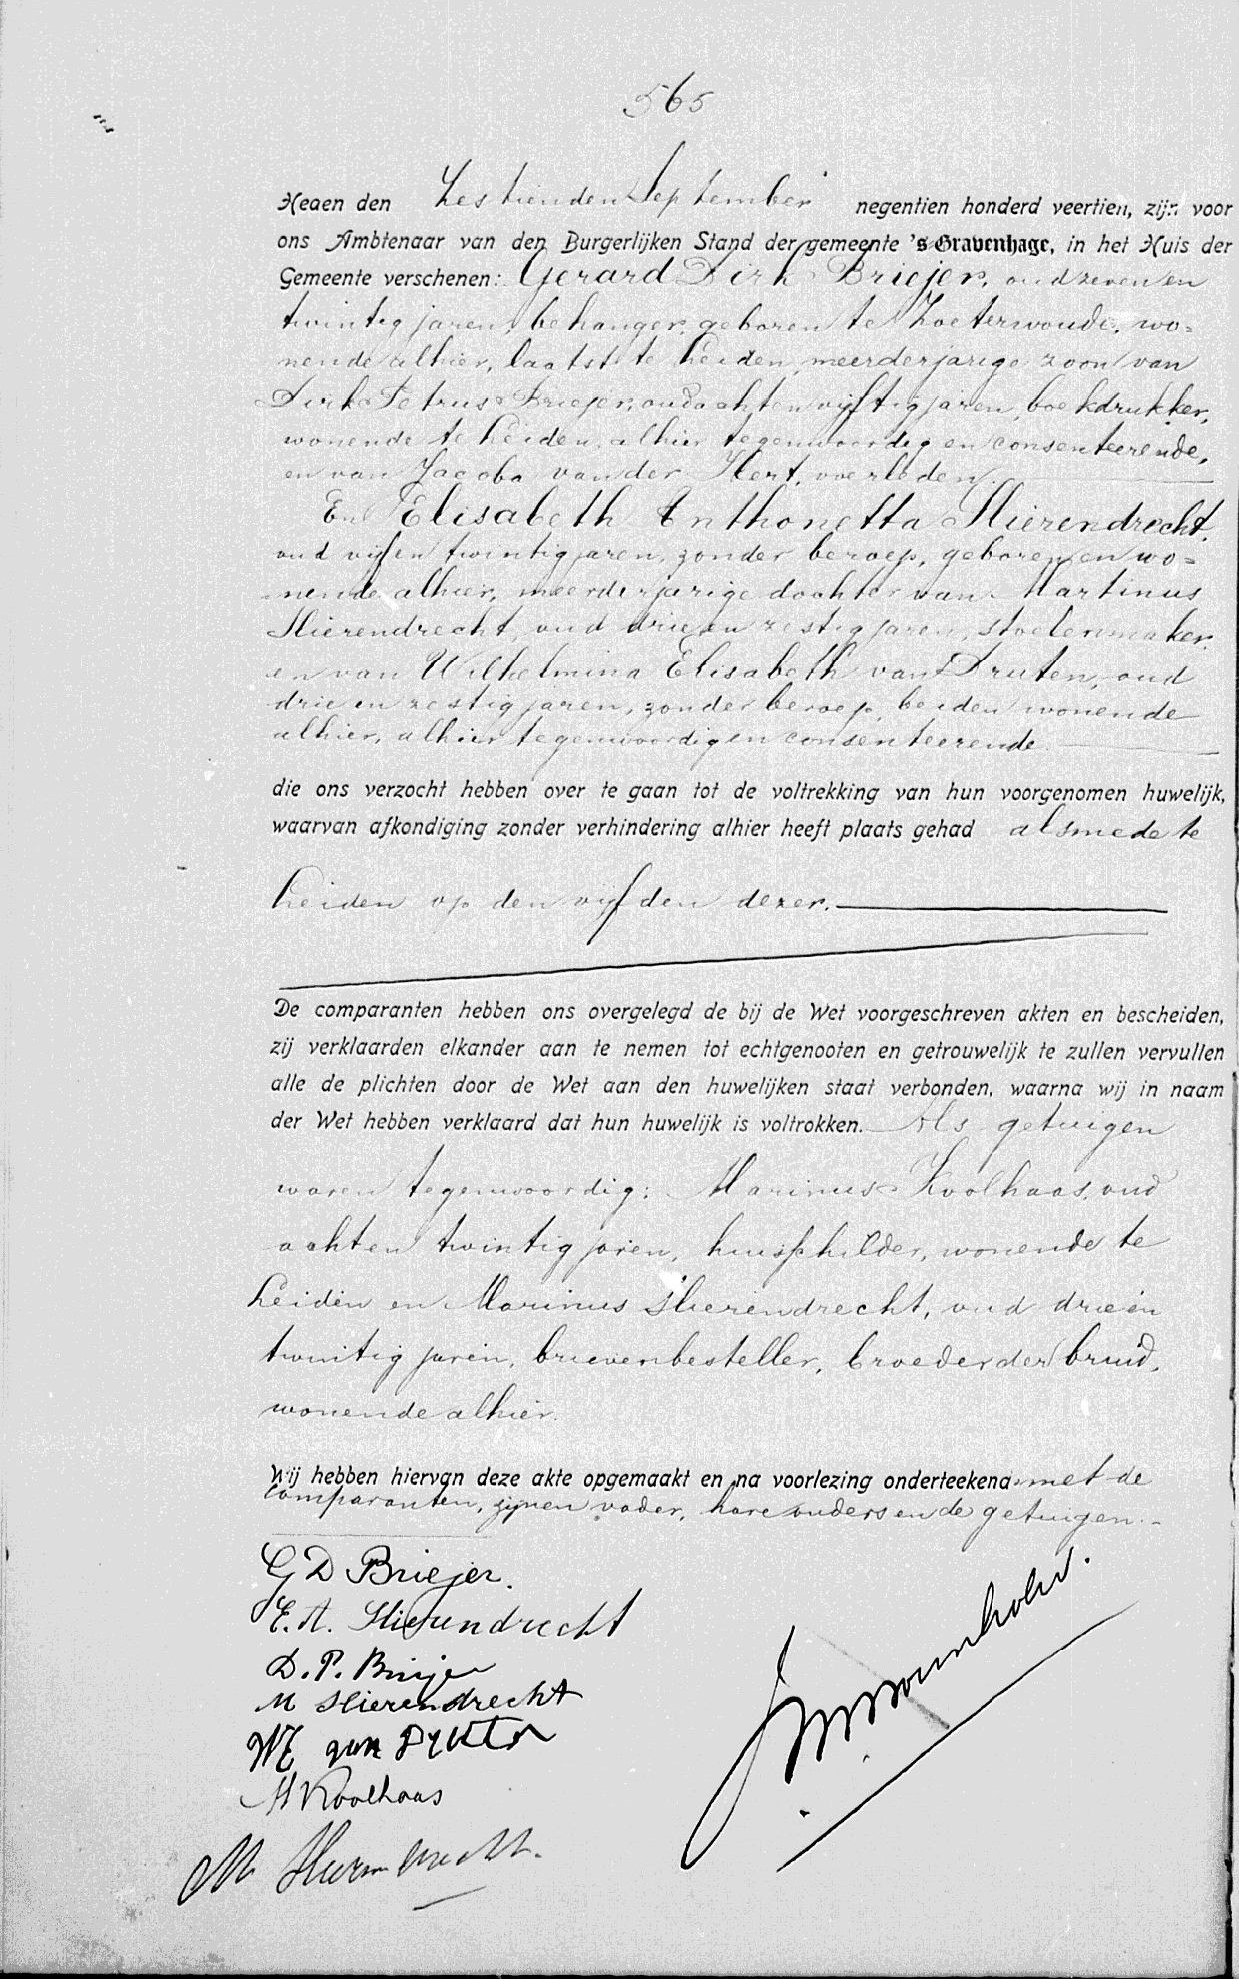 565
Heden den Zestienden September negentien honderd veertien, zijn voor
ons Ambtenaar van den Burgerlijken Stand der gemeente 's Gravenhage, in het Huis der
Gemeente verschenen: Gerard Dirk Briejer, oud zeven en
twintig jaren, behanger, geboren te Zoeterwoude, wo=
nende alhier, laatst te Leiden, meerderjarige zoon van
Dirk Petrus Briejer, oud acht en vijftig jaren, boekdrukker,
wonende te Leiden, alhier tegenwoordig en consenteerende,
en van Jacoba van der Stert, overleden.
En Elisabeth Anthonetta Slierendrecht,
oud vijf en twintig jaren, zonder beroep, geboren en wo=
nende alhier, meerderjarige dochter van Martinus
Slierendrecht, oud drie en zestig jaren, stoelenmaker,
en van Wilhelmina Elisabeth van Druten, oud
drie en zestig jaren, zonder beroep, beiden wonende
alhier, alhier tegenwoordig en consenteerende.
die ons verzocht hebben over te gaan tot de voltrekking van hun voorgenomen huwelijk,
waarvan afkondiging zonder verhindering alhier heeft plaats gehad alsmede te
Leiden op den vijfden dezer.
De comparanten hebben ons overgelegd de bij de Wet voorgeschreven akten en bescheiden,
zij verklaarden elkander aan te nemen tot echtgenooten en getrouwelijk te zullen vervullen
alle de plichten door de Wet aan den huwelijken staat verbonden, waarna wij in naam
der Wet hebben verklaard dat hun huwelijk is voltrokken. Als getuigen
waren tegenwoordig: Marinus Koolhaas, oud
acht en twintig jaren, huisschilder, wonende te
Leiden en Marinus Slierendrecht, oud drie en
twintig jaren, brievenbesteller, broeder der bruid,
wonende alhier.
Wij hebben hiervan deze akte opgemaakt en na voorlezing onderteekend met de
comparanten, zijnen vader, hare ouders en de getuigen.
G D Briejer.
E. A. Slierendrecht
D. P. Briejer
M Slierendrecht
WE van Drutten
M Koolhaas
M Slierendrecht.